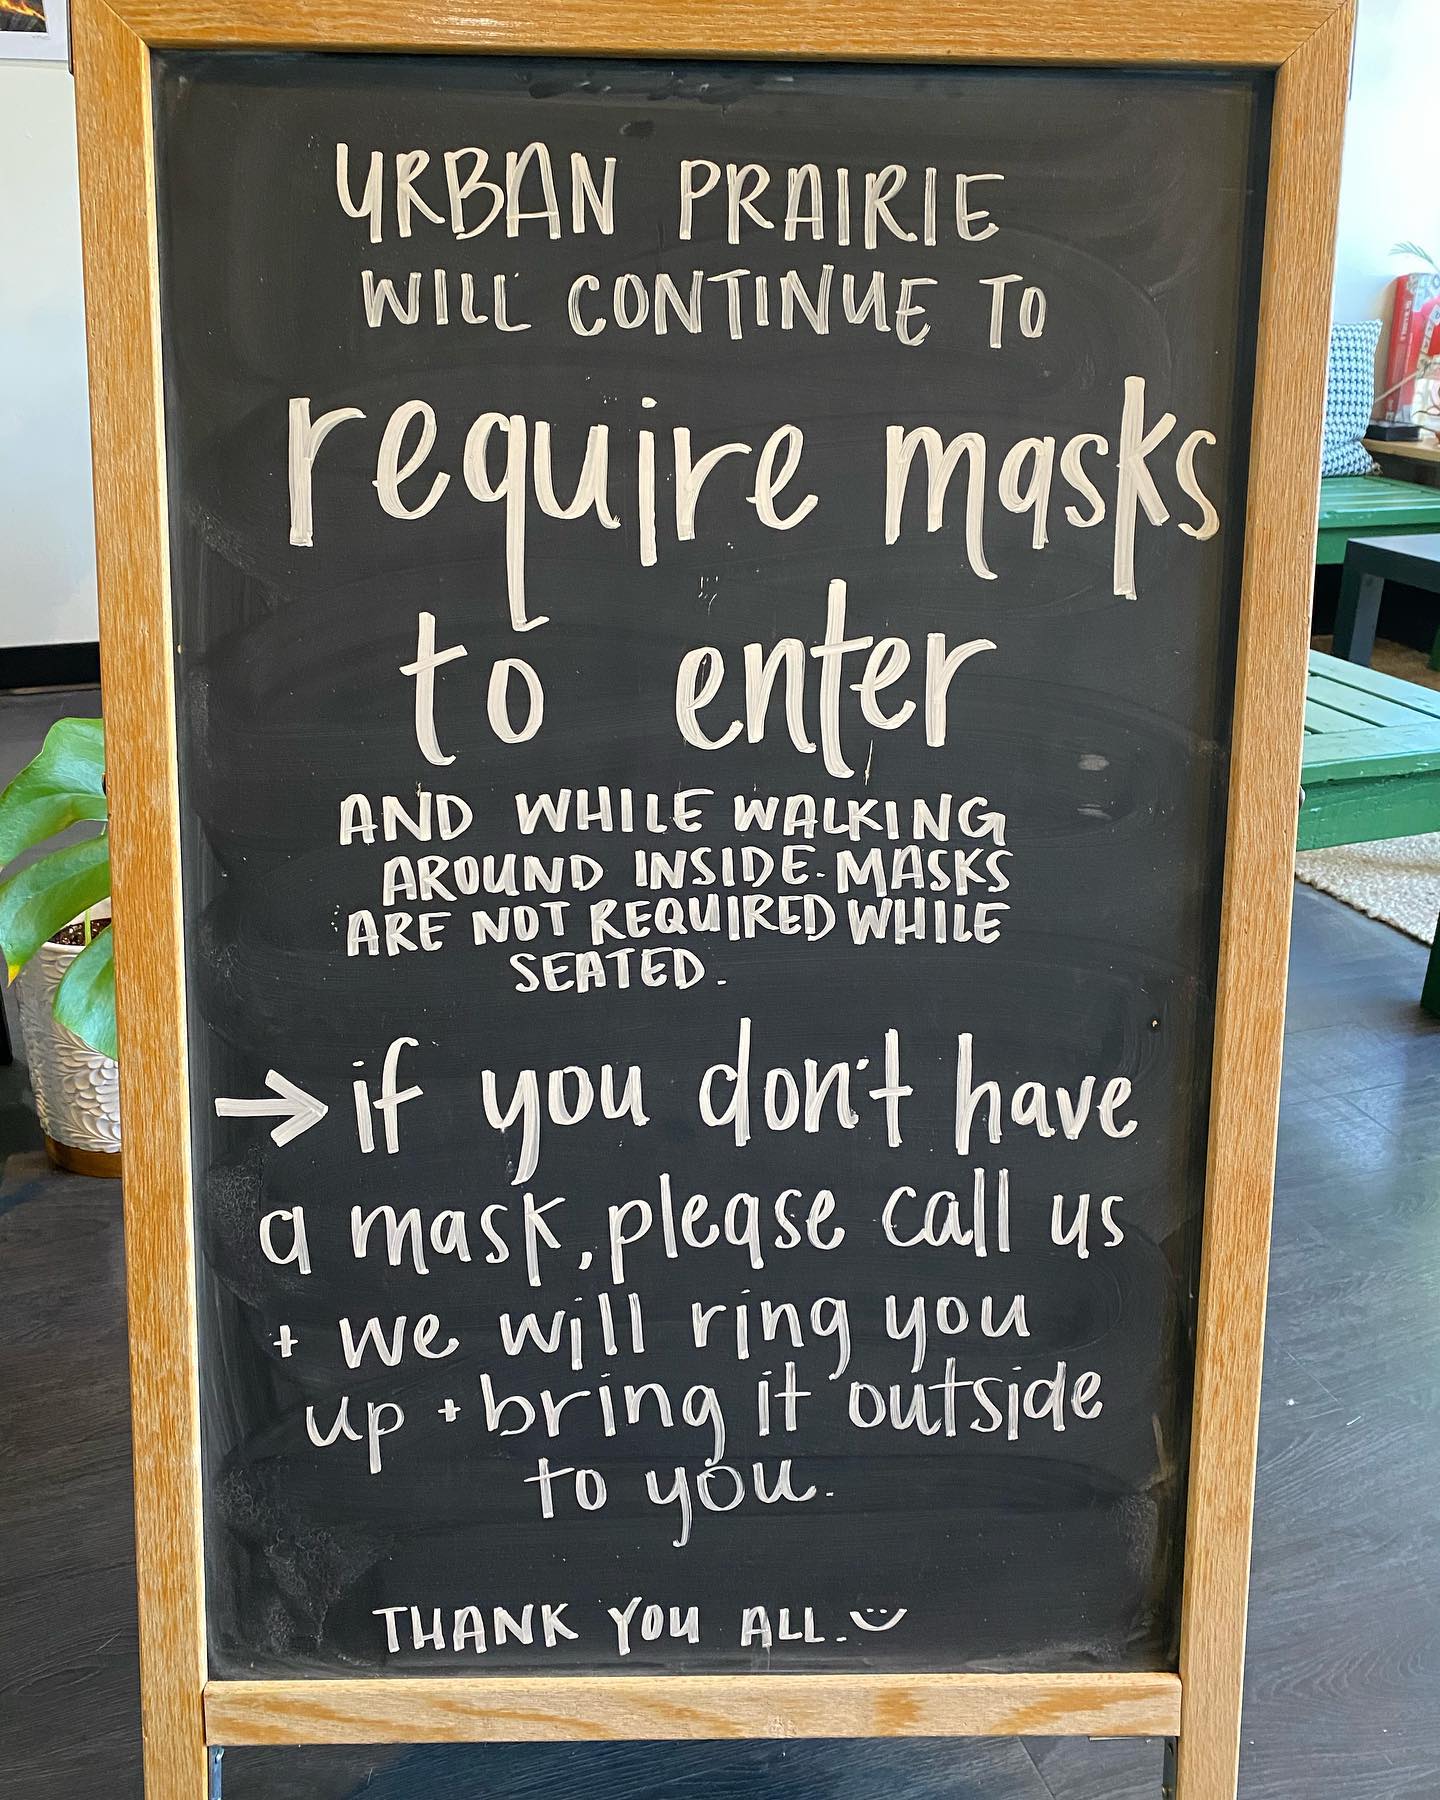 URBAN PRAIRIE
WILL CONTINUE TO
require masks
to enter
AND WHILE WALKING
AROUND INSIDE. MASKS
ARE NOT REQUIRED WHILE
SEATED.
→ if you don't have
a mask, please call us
+ we will ring you
up + bring it outside
to you.
THANK YOU ALL.